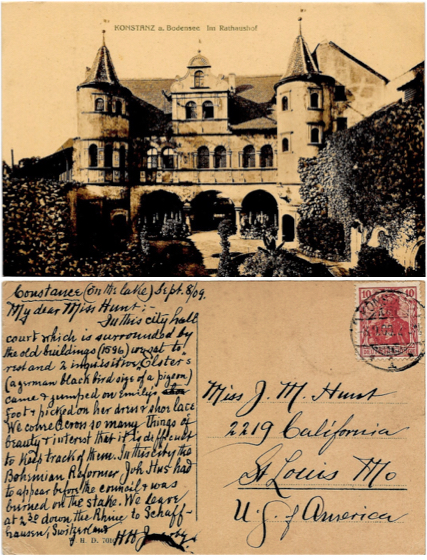 KONSTANZ a. Bodensee Im Rathaushof
Constance (on the lake) Sept. 8/09.
My dear Miss Hunt:-
In this city hall
court which is surrounded by
the old buildings (1596) we sat to
rest and 2 inquisitive Elsters
(a german black bird size of a pigeon)
came & jumped on Emily's
Foot & picked on her dress & shoe lace
We come across so many things of
beauty & interest that it is difficult
to keep track of them. In this city the
Bohemian Reformer, Joh Hus had
to appear before the council & was
burned on the stake. We leave
at 2 30 down the Rhine to Schaff-
hausen, Switzerland
H H
H. D.
10 10
KONSTANZ
Miss J. M. Hunt
2219 California
St Louis Mo
U. S. of America